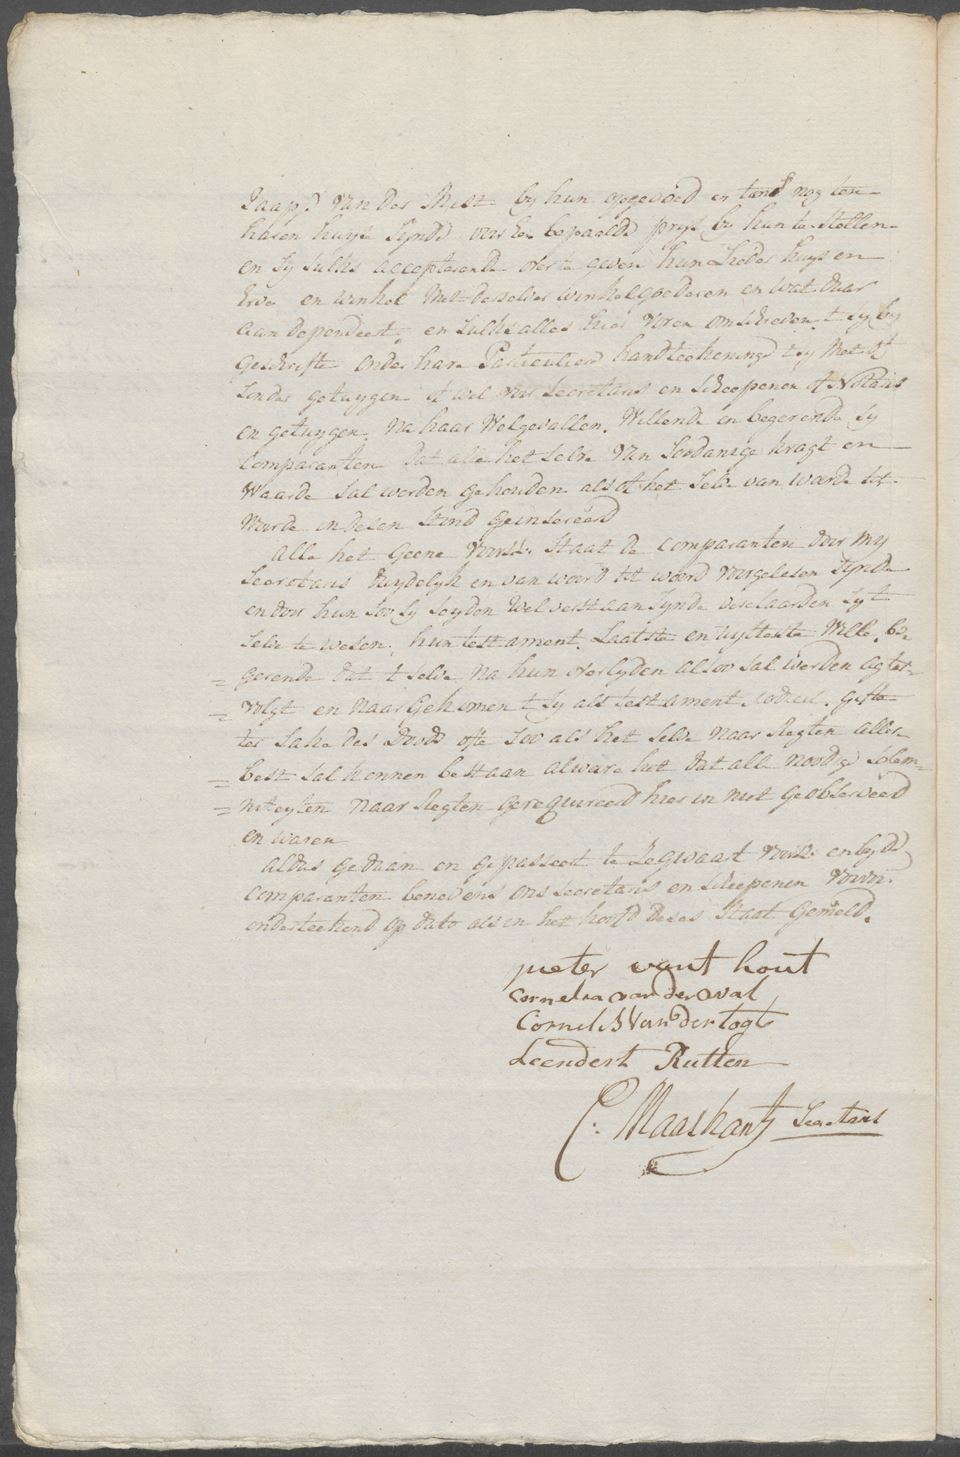 Jaapd van der Mist by hun opgevoed en tans nog ten
haren huyse Synde voor den bepaalde prys by hun te stellen
en Sy Sulks accepterende over te geven hun Lieder huys en
Erve en winkel Met deszelver winkelgoederen en wat daar
aan dependeert, en Sulks alles hier voren omschreven t sy by
geschrifte onder hare Particuliere handteekeninge t sy Met of
Sonder getuygen, 't wel voor Secretaris en Scheepenen of Notaris
en getuygen. Na haar Welgevallen. Willende en begerende Sy
Comparanten dat alle het Selve van Soodanige kragt en
Waarde Sal worden gehouden als of het Selve van woorde tot
Woorde in desen Stond geinsereerd
Alle het Geene voorsz. Staat de comparanten door my
Secretaris duydelyk en van woord tot woord voorgelesen Synde
en door hun Soo Sy Seyden Wel verstaan Synde verclaarden Sy t
Selve te wesen, hun testament, Laatste en uytterste Wille, be
= gerende dat t Selve Na hun overlyden alsoo Sal werden agter-
= volgt en naargekomen t Sy als testament, codicil, gifte
ter Sake des Doods ofte Soo als het Selve naar Regten aller-
= best Sal konnen bestaan alware het dat alle noodige Solem-
= niteyten naar Regten gerequireerd hier in niet geobserveerd
en waren
Aldus gedaan en gepasseert te Zegwaart voorsz. en by de
comparanten benevens ons Secretaris en Scheepenen voorn.
onderteekend op dato als in het hoofd deses Staat Gemeld.
pieter vant hout
Cornelia van der wal
Cornelis Van der togt
Leendert Rutten
C: Maaskant Secretaris